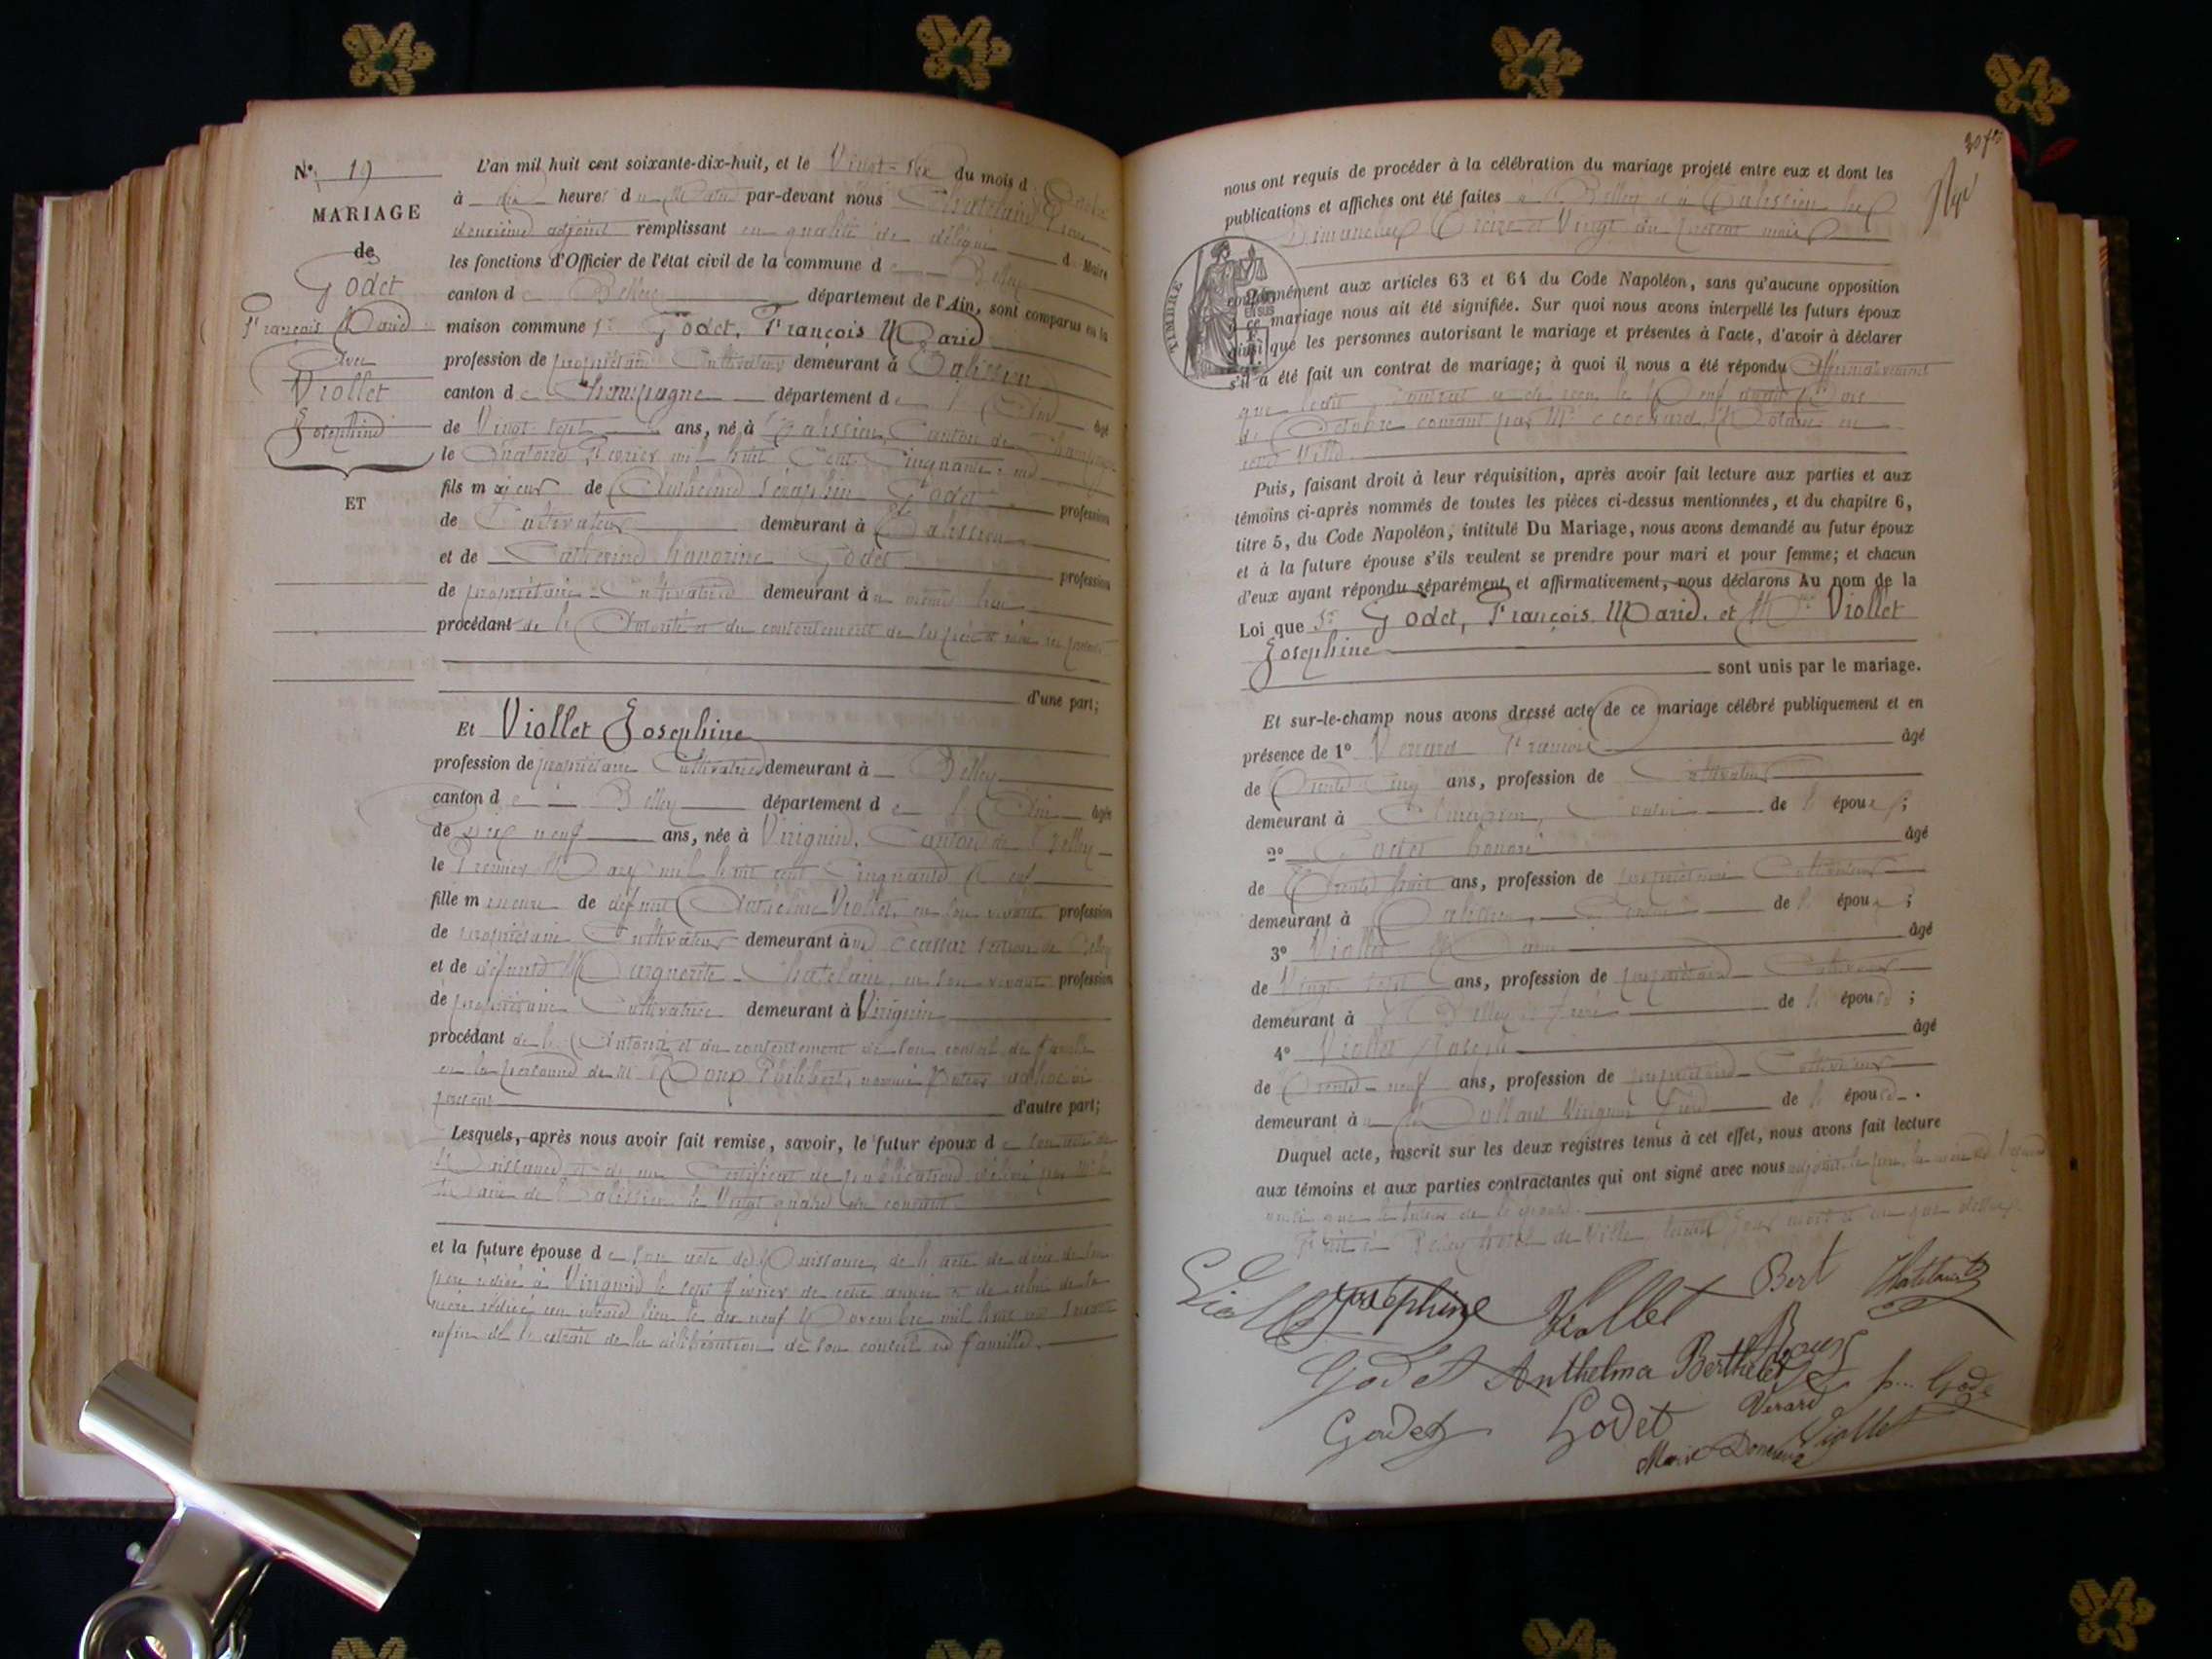 N° 19
MARIAGE
de
Godet
François Marie
Avec
Viollet
Josephine
ET
L'an mil huit cent soixante-dix-huit, et le Vingt-six du mois d'
à dix heures du Matin par-devant nous Chatelain
deuxième adjoint remplissant en qualité de délégué d Maire
les fonctions d'Officier de l'état civil de la commune de Belley
canton de Belley département de l'Ain, sont comparus en la
maison commune Sr Godet, François Marie
profession de propriétaire Cultivateur demeurant à Talissieu
canton de Champagne département de l'Ain âgé
de Vingt-sept ans, né à Talissieu, Canton de Champagne
le Quatorze Février mil huit Cent Cinquante-un
fils majeur de Anthelme Godet profession
de Cultivateur demeurant à Talissieu
et de Catherine honorine Godet profession
de propriétaire-Cultivatrice demeurant au même lieu
procédant de l'Autorité et du consentement de ses père et mère
d'une part;
Et Viollet Josephine
profession de propriétaire Cultivatrice demeurant à Belley
canton de Belley département de l'Ain âgée
de Dix neuf ans, née à Virignin, Canton de Belley
le Premier Mars mil huit cent Cinquante Neuf
fille mineure de défunt Anthelme Viollet, en son vivant profession
de propriétaire Cultivateur demeurant à section de Belley
et de défunte Marguerite Chatelain, en son vivant profession
de propriétaire Cultivatrice demeurant à Virignin
procédant de l'Autorité et du consentement de son conseil de famille
en la personne de Mr Roux Philibert, nommé Tuteur ad hoc ici
présent d'autre part;
Lesquels, après nous avoir fait remise, savoir, le futur époux de son acte de
Naissance et de un Certificat de publications délivré par Mr le
Maire de Talissieu le Vingt quatre du courant
et la future épouse de son acte de Naissance, de l'acte de décès de son
père rédigé à Virignin le sept Février de cette année et de celui de la
mère rédigé au même lieu le dix neuf Novembre mil huit cent
enfin de l'extrait de la délibération de son conseil de famille.
nous ont requis de procéder à la célébration du mariage projeté entre eux et dont les
publications et affiches ont été faites à Belley et à Talissieu les
Dimanches Treize et Vingt du présent mois
TIMBRE
conformément aux articles 63 et 64 du Code Napoléon, sans qu'aucune opposition
à ce mariage nous ait été signifiée. Sur quoi nous avons interpellé les futurs époux
ainsi que les personnes autorisant le mariage et présentes à l'acte, d'avoir à déclarer
s'il a été fait un contrat de mariage; à quoi il nous a été répondu Affirmativement
que ledit Contrat a été reçu le Neuf
Octobre courant par Me Notaire en
cette Ville
Puis, faisant droit à leur réquisition, après avoir fait lecture aux parties et aux
témoins ci-après nommés de toutes les pièces ci-dessus mentionnées, et du chapitre 6,
titre 5, du Code Napoléon, intitulé Du Mariage, nous avons demandé au futur époux
et à la future épouse s'ils veulent se prendre pour mari et pour femme; et chacun
d'eux ayant répondu séparément et affirmativement, nous déclarons Au nom de la
Loi que Sr Godet, François Marie. et Mlle Viollet
Josephine
sont unis par le mariage.
Et sur-le-champ nous avons dressé acte de ce mariage célébré publiquement et en
présence de 1° Verard François âgé
de Trente Cinq ans, profession de Cultivateur
demeurant à de l'époux;
2° Godet honoré âgé
de Trente huit ans, profession de propriétaire Cultivateur
demeurant à Talissieu, de l'époux;
3° Viollet Marie âgé
de Vingt-sept ans, profession de propriétaire Cultivateur
demeurant à Belley frère de l'épouse;
4° Viollet Joseph âgé
de Trente-neuf ans, profession de propriétaire Cultivateur
demeurant à Virignin frère de l'épouse.
Duquel acte, inscrit sur les deux registres tenus à cet effet, nous avons fait lecture
aux témoins et aux parties contractantes qui ont signé avec nous adjoint, le père, la mère de l'époux
ainsi que le tuteur de l'épouse.
Fait à Belley hotel de Ville, lesdits jour mois et an que dessus
Viollet Josephine Viollet Bert Chatelain
Godet Anthelma Berthelet Roux p... Gode
Godet Godet Verard
Marie Viollet